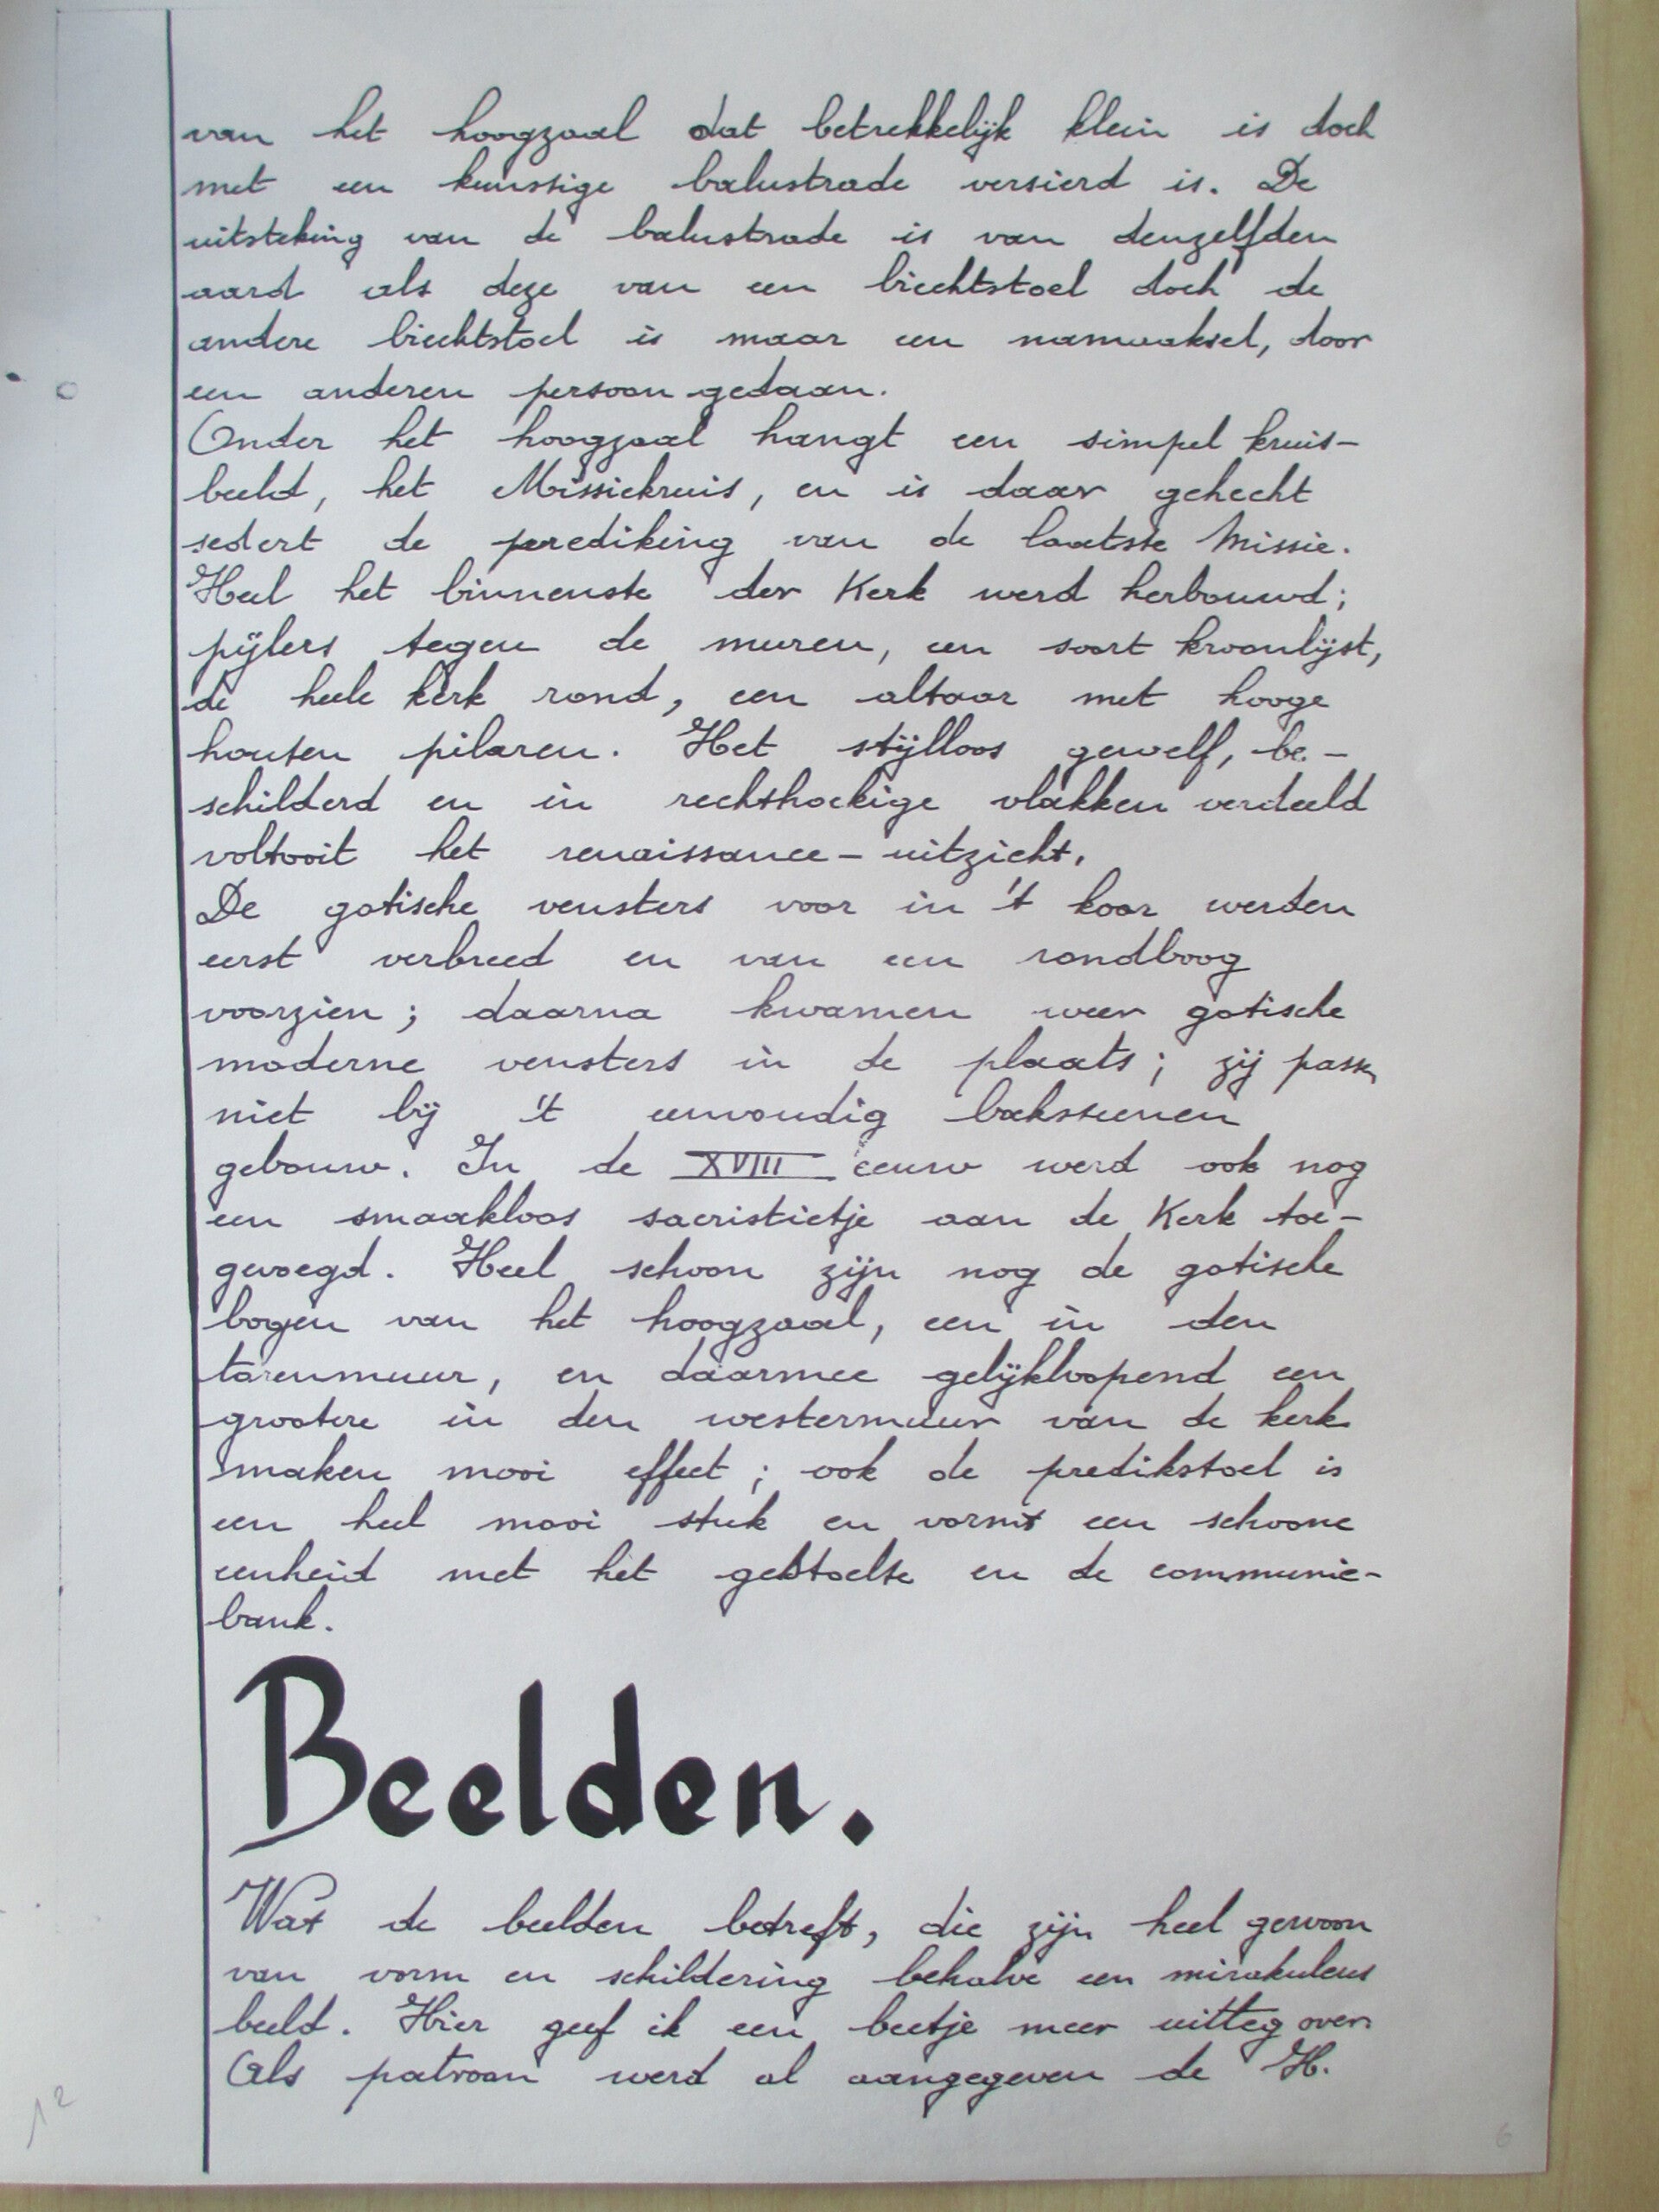 van het hoogzaal dat betrekkelijk klein is doch
met een kunstige balustrade versierd is. De
uitsteking van de balustrade is van denzelfden
aard als deze van een biechtstoel doch de
andere biechtstoel is maar een namaaksel, door
een anderen persoon gedaan.
Onder het hoogzaal hangt een simpel kruis-
beeld, het Missiekruis, en is daar gehecht
sedert de prediking van de laatste Missie.
Heel het binnenste der Kerk werd herbouwd;
pijlers tegen de muren, een soort kroonlijst,
de heele kerk rond, een altaar met hooge
houten pilaren. Het stijlloos gewelf, be-
schilderd en in rechthoekige vlakken verdeeld
voltooit het renaissance-uitzicht.
De gotische vensters voor in 't koor werden
eerst verbreed en van een rondboog
voorzien; daarna kwamen weer gotische
moderne vensters in de plaats; zij passen
niet bij 't eenvoudig bakstenen
gebouw. In de XVIII eeuw werd ook nog
een smaakloos sacristietje aan de Kerk toe-
gevoegd. Heel schoon zijn nog de gotische
bogen van het hoogzaal, een in den
torenmuur, en daarmee gelijkloopend een
grootere in den westermuur van de kerk
maken mooi effect; ook de predikstoel is
een heel mooi stuk en vormt een schoone
eenheid met het gestoelte en de communie-
bank.
Beelden.
Wat de beelden betreft, die zijn heel gewoon
van vorm en schildering behalve een mirakuleus
beeld. Hier geef ik een beetje meer uitleg over.
Als patroon werd al aangegeven de H.
12
6